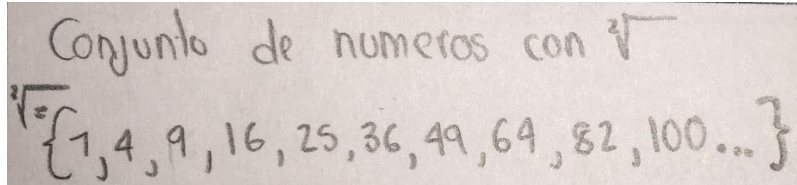 Conjunto de numeros con ²√
²√= {1, 4, 9, 16, 25, 36, 49, 64, 82, 100...}